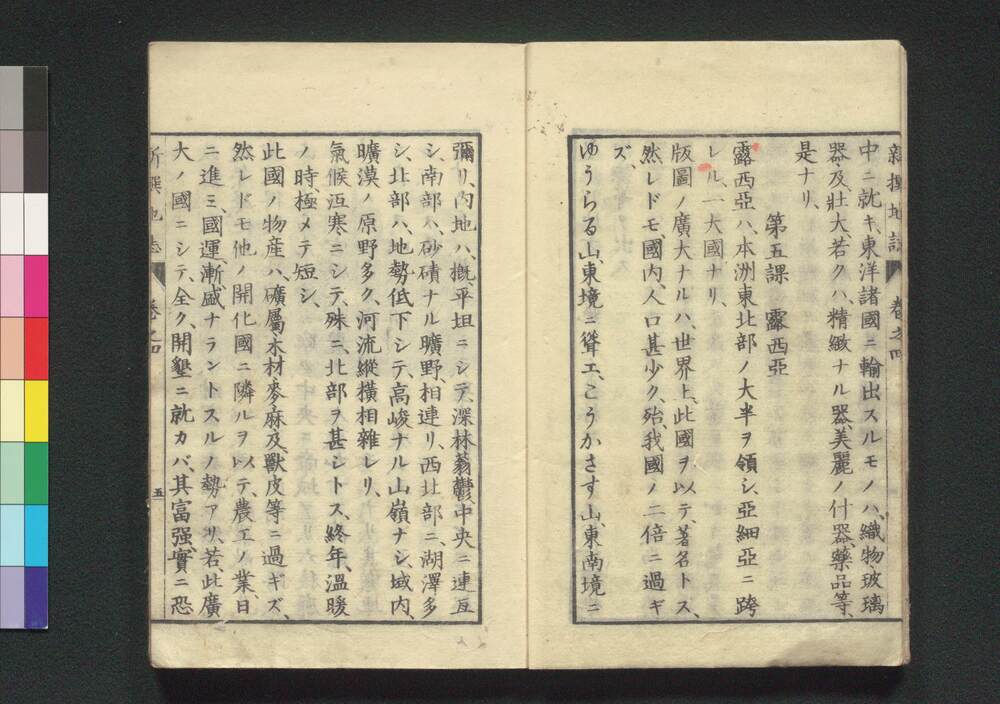 新撰地誌 卷之四
中ニ就キ、東洋諸國ニ輸出スルモノハ、織物、玻璃
器、及、壯大若クハ、精緻ナル器、美麗ノ什器、藥品等、
是ナリ、
第五課 露西亞
露西亞ハ、本洲東北部ノ大半ヲ領シ、亞細亞ニ跨
レル、一大國ナリ、
版圖ノ廣大ナルハ、世界上、此國ヲ以テ、著名トス、
然レドモ、國内、人口甚少ク、殆、我國ノ二倍ニ過ギ
ズ、
ゆうらる山、東境ニ聳エ、こうかさす山、東南境ニ
彌リ、内地ハ、概、平坦ニシテ、深林蓊鬱、中央ニ連亙
シ、南部ハ、砂磧ナル曠野、相連リ、西北部ニ、湖澤多
シ、北部ハ、地勢低下シテ、高峻ナル山嶺ナシ、域内、
曠漠ノ原野多ク、河流縱横相雜レリ、
氣候沍寒ニシテ、殊ニ、北部ヲ甚シトス、終年、溫暖
ノ時、極メテ短シ、
此國ノ物産ハ、礦屬、木材、麥、麻、及、獸皮等ニ過ギズ、
然レドモ他ノ開化國ニ隣ルヲ以テ、農工ノ業、日
ニ進ミ、國運漸、盛ナラントスルノ勢アリ、若、此廣
大ノ國ニシテ、全ク、開墾ニ就カバ、其富强、實ニ恐
新撰地誌 卷之四 五